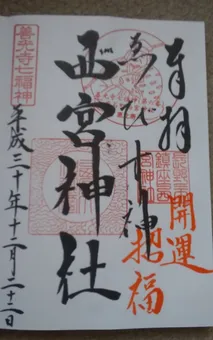 奉拝
開運
招福
ゑびす神
西宮神社
善光寺七福神
平成三十年十二月二十二日